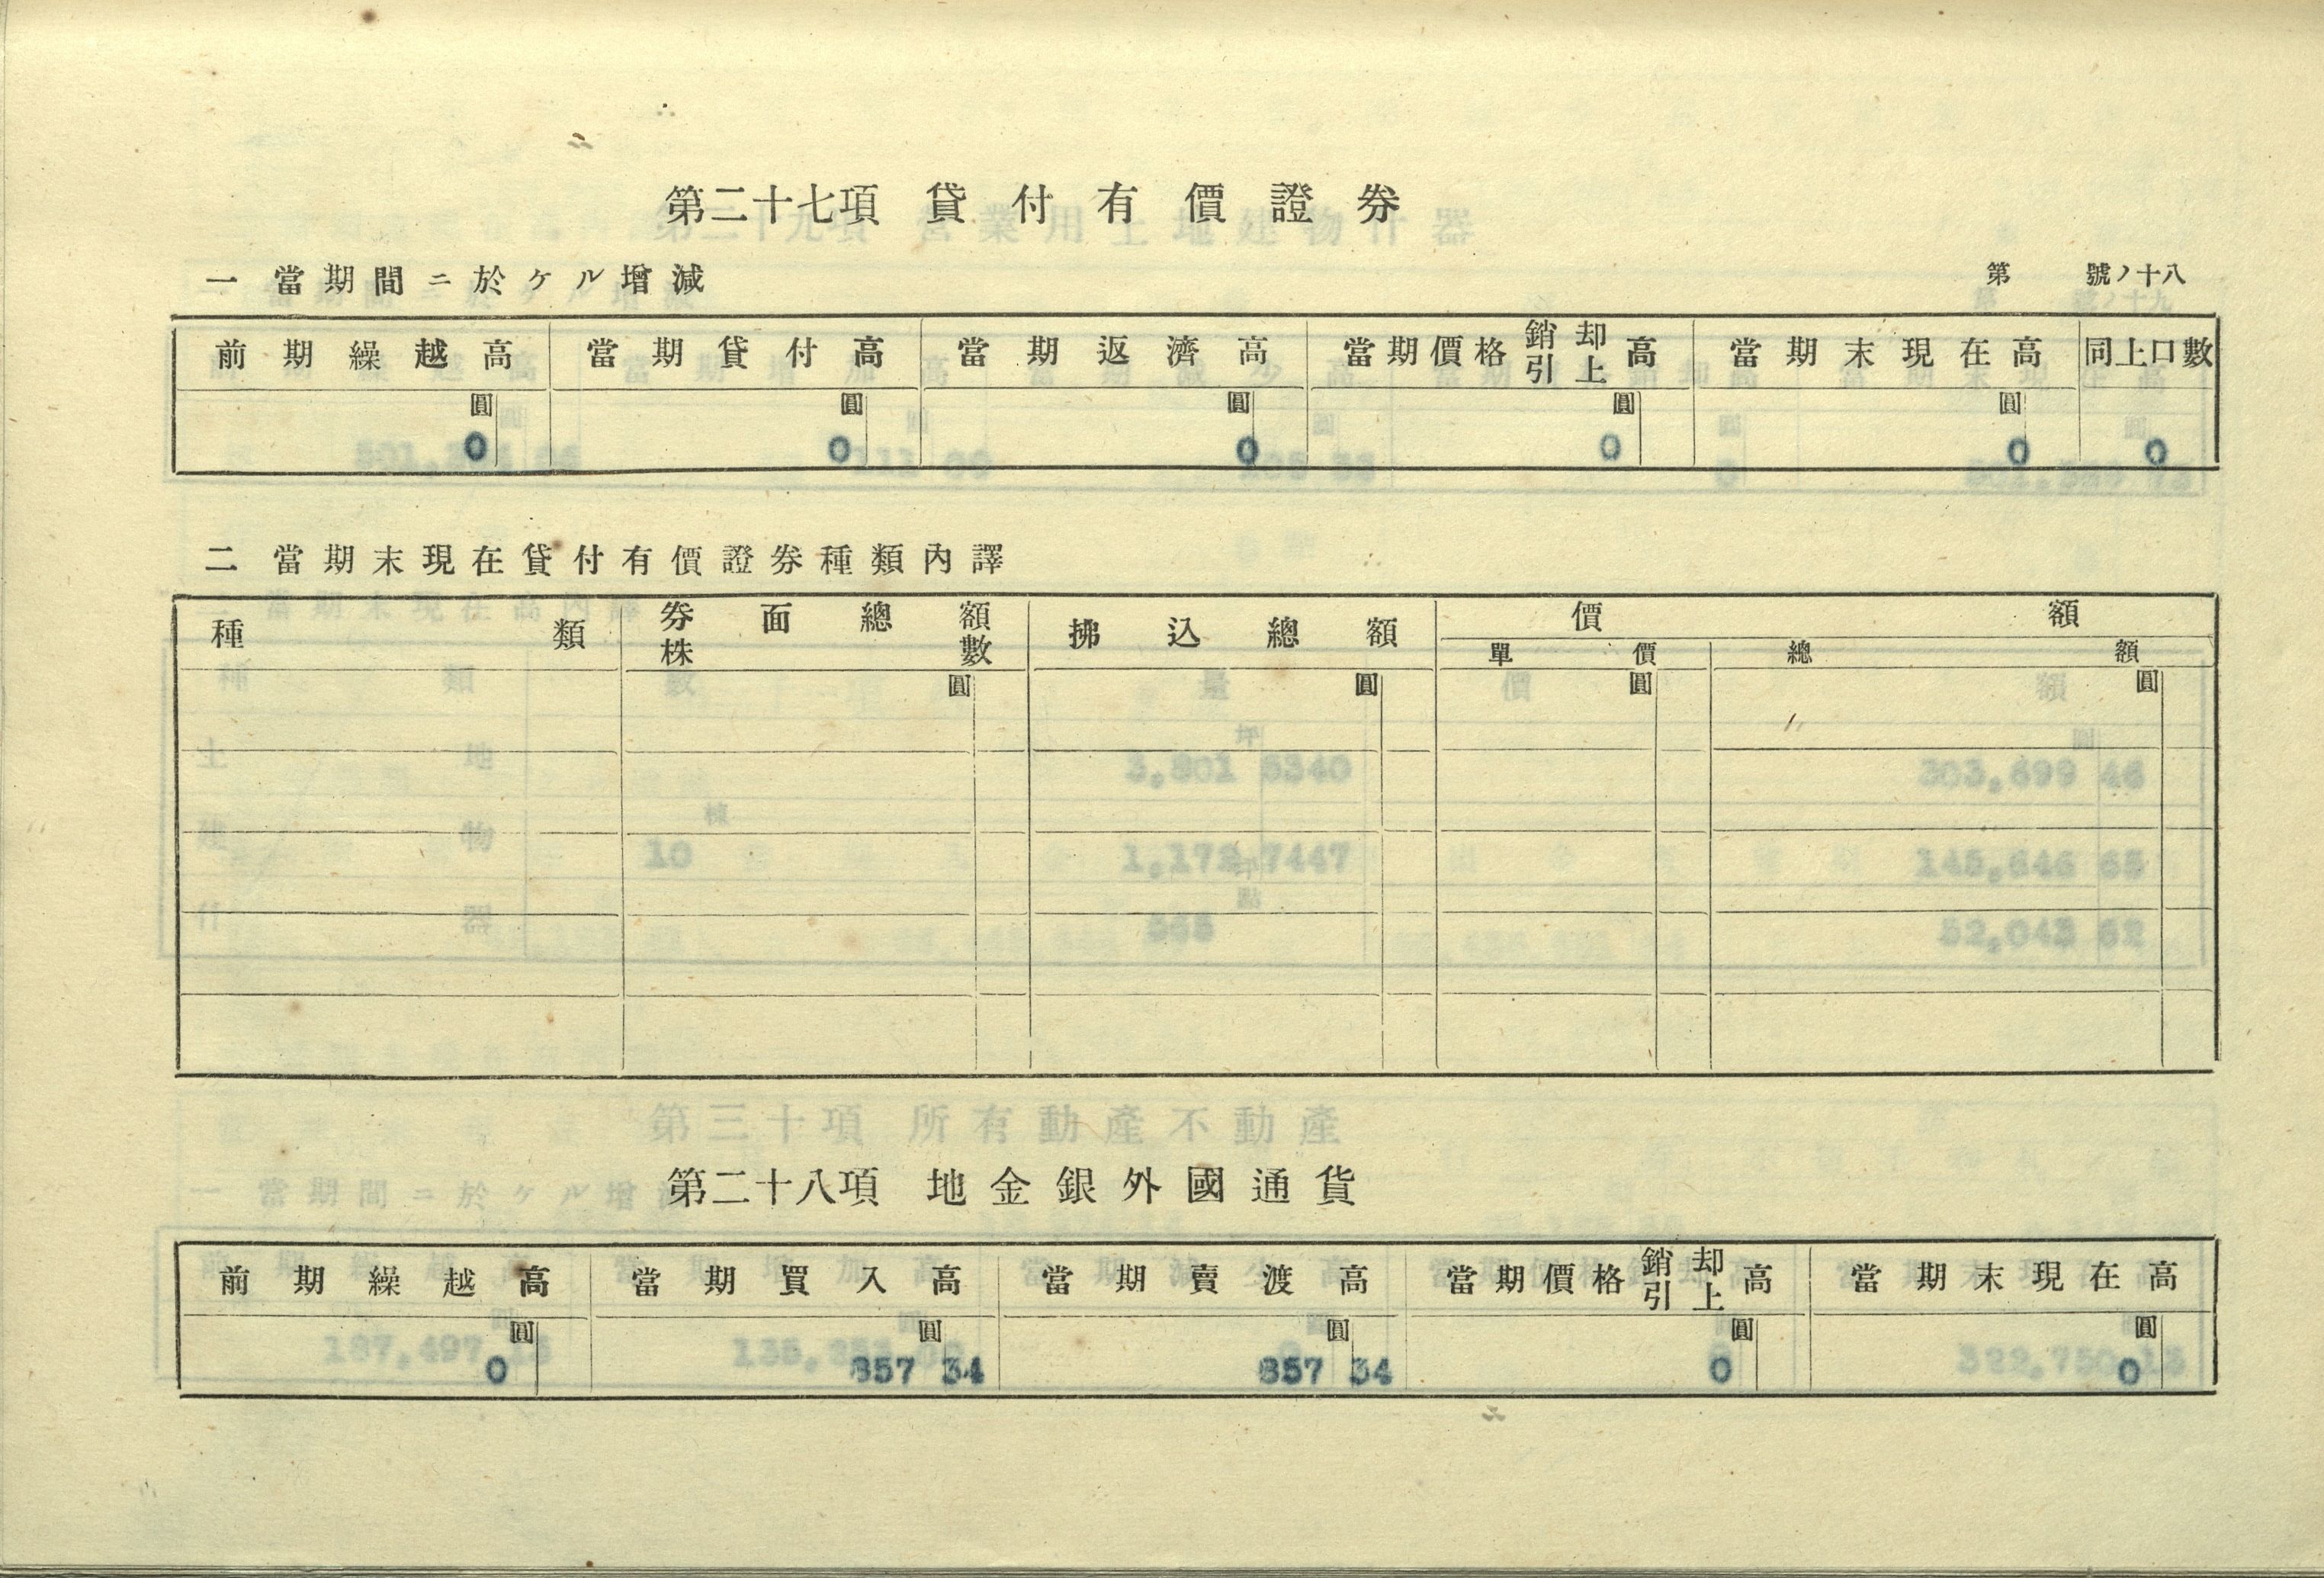 第二十七項 貸付有價證券
一 當期間ニ於ケル增減
第 號ノ十八
前期繰越高 當期貸付高 當期返濟高 當期價格銷却引上高 當期末現在高 同上口數
圓 圓 圓 圓 圓
0 0 0 0 0 0
二 當期末現在貸付有價證券種類內譯
種類 券面總額株數 拂込總額 價額
單價 總額
圓 圓 圓 圓
第二十八項 地金銀外國通貨
前期繰越高 當期買入高 當期賣渡高 當期價格銷却引上高 當期末現在高
圓 圓 圓 圓 圓
0 857 34 857 34 0 0